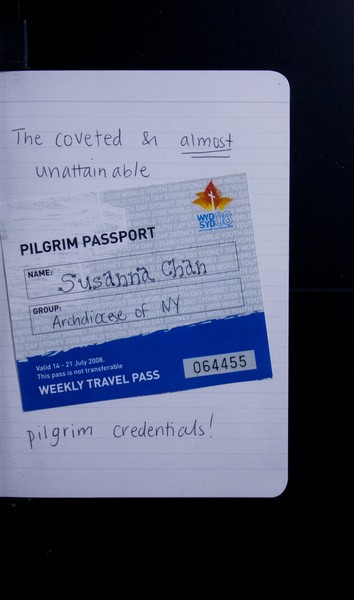 The coveted & almost
unattainable
WYD
SYD08
PILGRIM PASSPORT
NAME:
Susanna Chan
GROUP:
Archdiocese of NY
Valid 14 - 21 July 2008.
This pass is not transferable
WEEKLY TRAVEL PASS
064455
pilgrim credentials!